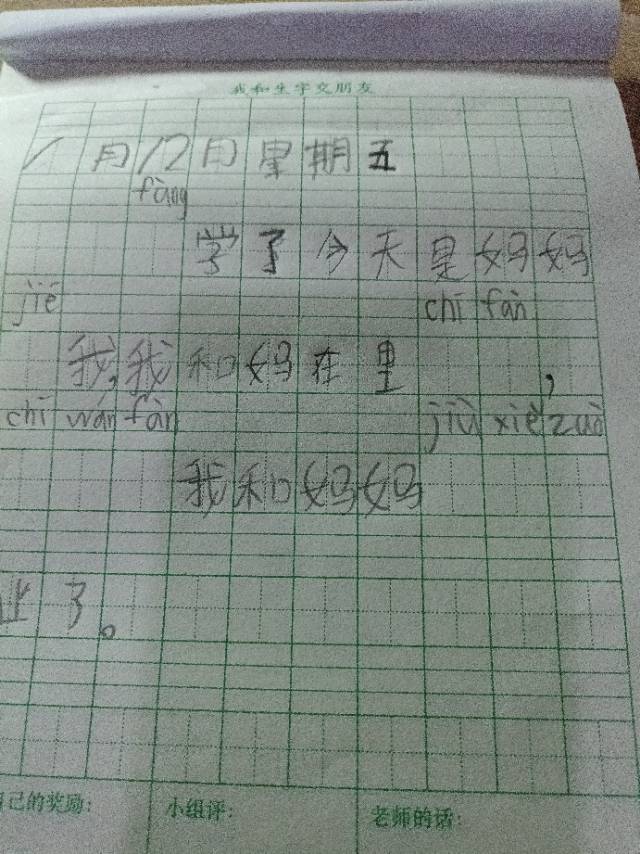 我和生字交朋友
1月12日星期五
fàng
学了今天是妈妈
jiē chī fàn
我,我和妈在里,
chī wán fàn jiù xiě zuò
我和妈妈妈
业了。
自己的奖励: 小组评: 老师的话: